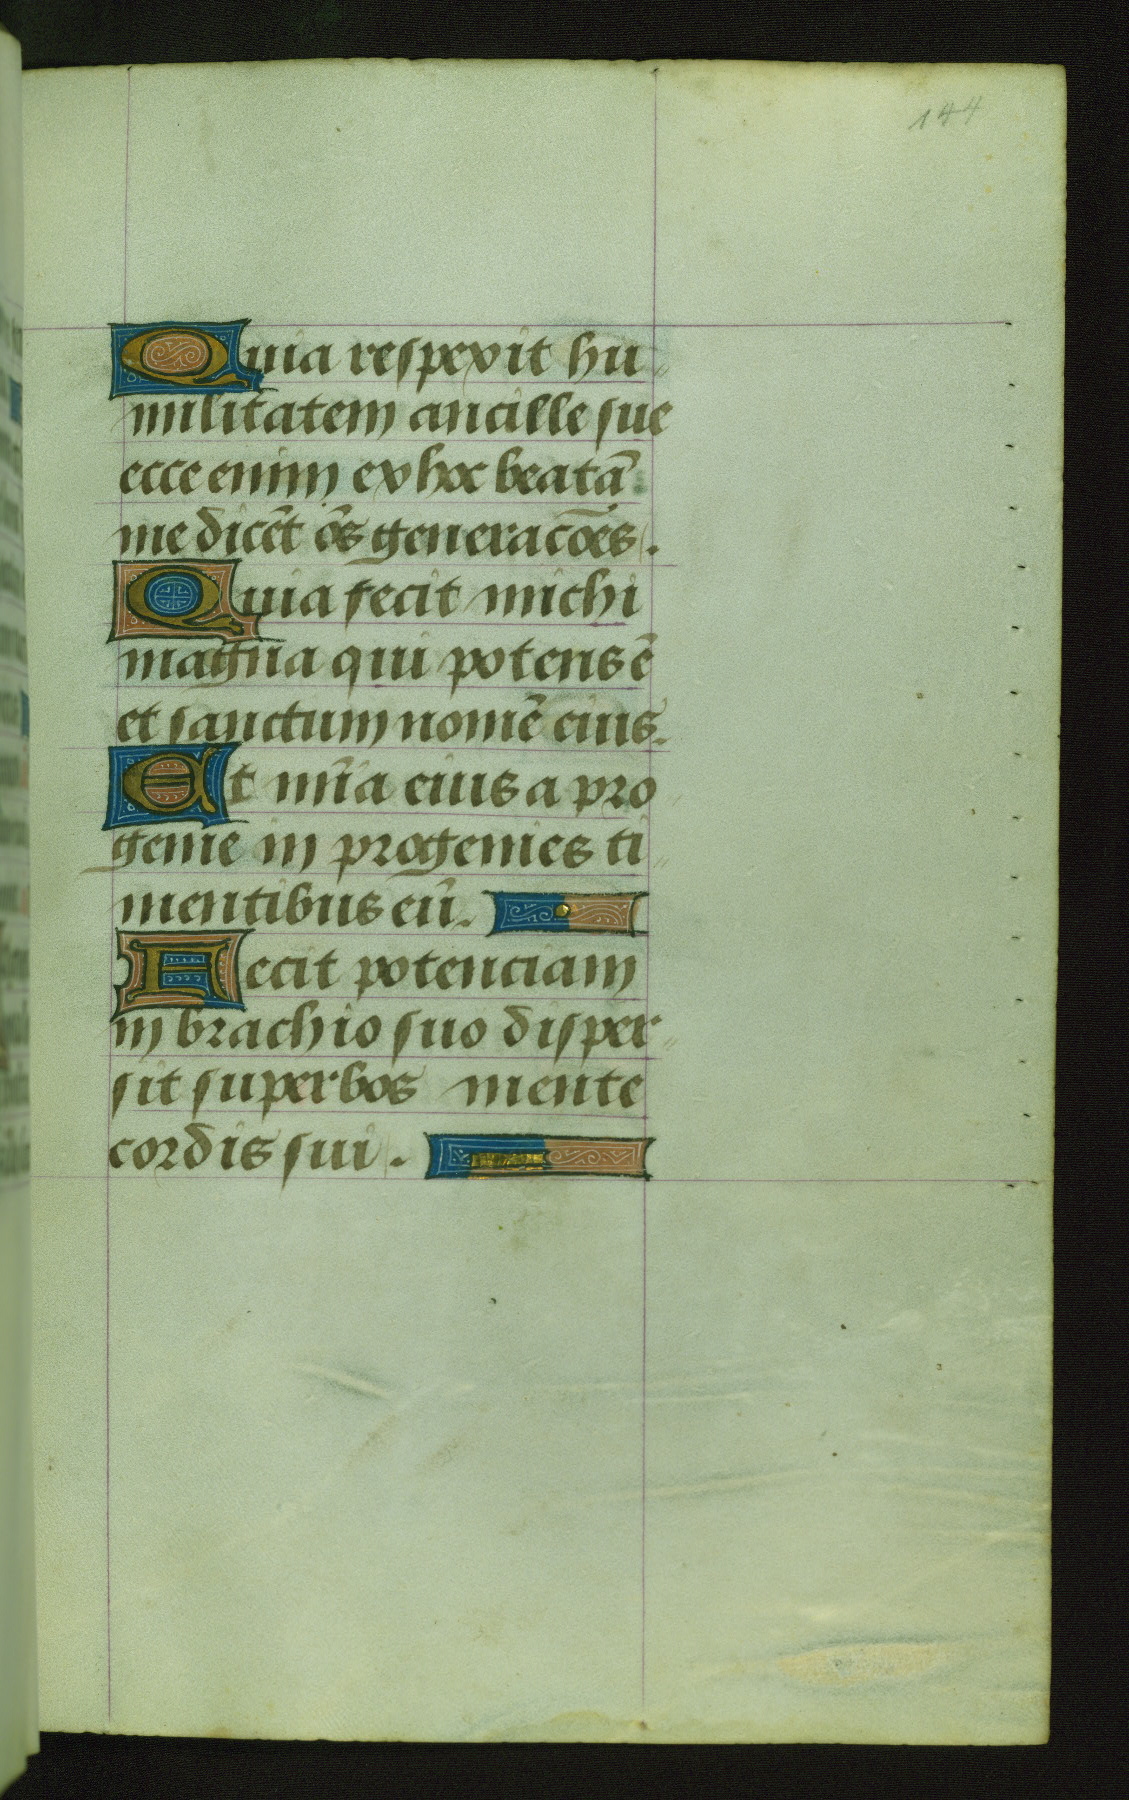 144
Quia respexit hu
militatem ancille sue
ecce enim ex hoc beatā
me dicēt ōs generacōes.
Quia fecit michi
magna qui potens ē
et sanctum nomē eius.
Et mīa eius a pro
genie in progenies ti
mentibus eū.
Fecit potenciam
in brachio suo disper
sit superbos mente
cordis sui.